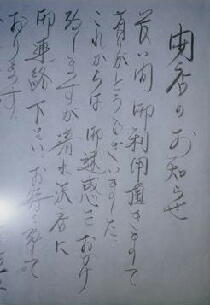 閉店のお知らせ
長い間御利用頂きまして
有がとうございました
これからは御迷惑をおかけ
致しますが清水沢店に
御連絡下さいお待ち致して
おります